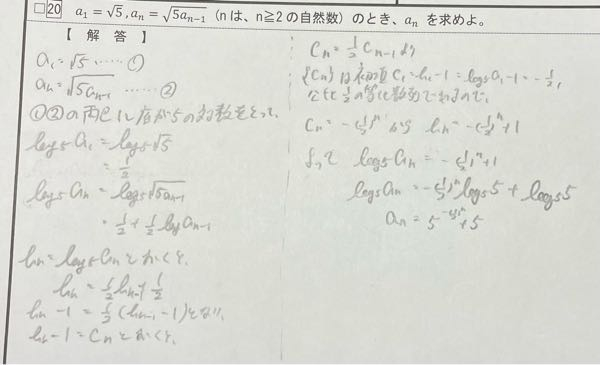 □20 a₁ = √5, aₙ = √(5aₙ₋₁) (n は、n≧2 の自然数) のとき、aₙ を求めよ。
【 解 答 】
a₁ = √5 …… ①
aₙ = √(5aₙ₋₁) …… ②
①②の両辺に底が5の対数をとって、
log₅a₁ = log₅√5
= 1/2
log₅aₙ = log₅√(5aₙ₋₁)
= 1/2 + 1/2 log₅aₙ₋₁
bₙ = log₅aₙ とおくと、
bₙ = 1/2 bₙ₋₁ + 1/2
bₙ - 1 = 1/2 (bₙ₋₁ - 1) となり、
bₙ - 1 = Cₙ とおくと、
Cₙ = 1/2 Cₙ₋₁ より
{Cₙ} は初項 C₁ = b₁ - 1 = log₅a₁ - 1 = -1/2,
公比 1/2 の等比数列であるので、
Cₙ = -(1/2)ⁿ から bₙ = -(1/2)ⁿ + 1
よって log₅aₙ = -(1/2)ⁿ + 1
log₅aₙ = -(1/2)ⁿ log₅5 + log₅5
aₙ = 5^(-(1/2)ⁿ) + 5